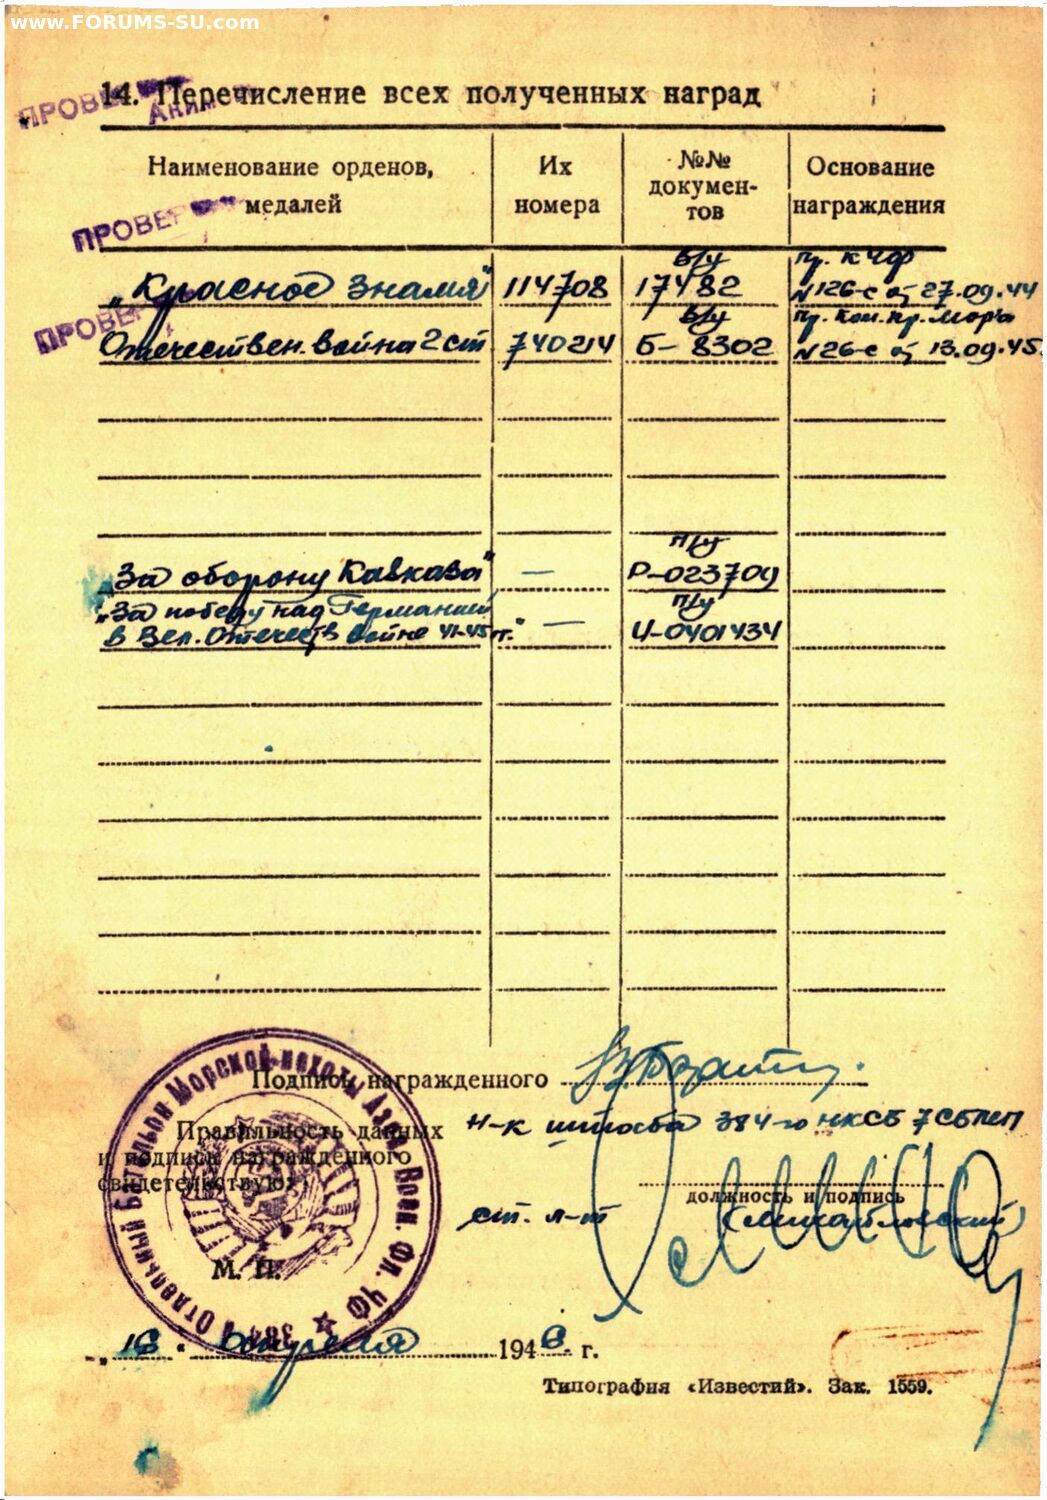 www.FORUMS-SU.com
14. Перечисление всех полученных наград
ПРОВЕ
ПРОВЕР
ПРОВЕР
Наименование орденов, медалей
Их номера
№№ докумен-
тов
Основание награждения
„Красное Знамя"
114708
б/у
17482
пр. КЧФ
N 126-с от 27.09.44
Отечествен. война 2 ст
740214
б/у
Б- 8302
пр. Ком.
N 26-с от 13.09.45.
„За оборону Кавказа"
—
п/у
Р-023709
„За победу над Германией
в Вел. Отечеств войне 41-45 гг."
—
п/у
Ц-0401434
Подпись награжденного
Правильность данных
и подпись награжденного
свидетельствую:
Н-к штаба 384-го
должность и подпись
ст. л-т
М. П.
384 Отдельный Батальон Морской пехоты Аз. Воен. Фл. ЧФ
„16" апреля 1946 г.
Типография «Известий». Зак. 1559.